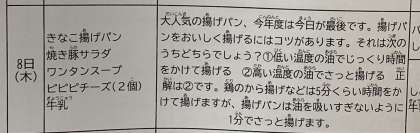 8日
(木)
きなこ揚げパン
焼き豚サラダ
ワンタンスープ
ピピピチーズ(2個)
牛乳
大人気の揚げパン、今年度は今日が最後です。揚げパ
ンをおいしく揚げるにはコツがあります。それは次の
うちどちらでしょう?①低い温度の油でじっくり時間
をかけて揚げる ②高い温度の油でさっと揚げる 正
解は②です。鶏のから揚げなどは5分くらい時間をか
けて揚げますが、揚げパンは油を吸いすぎないように
1分でさっと揚げます。